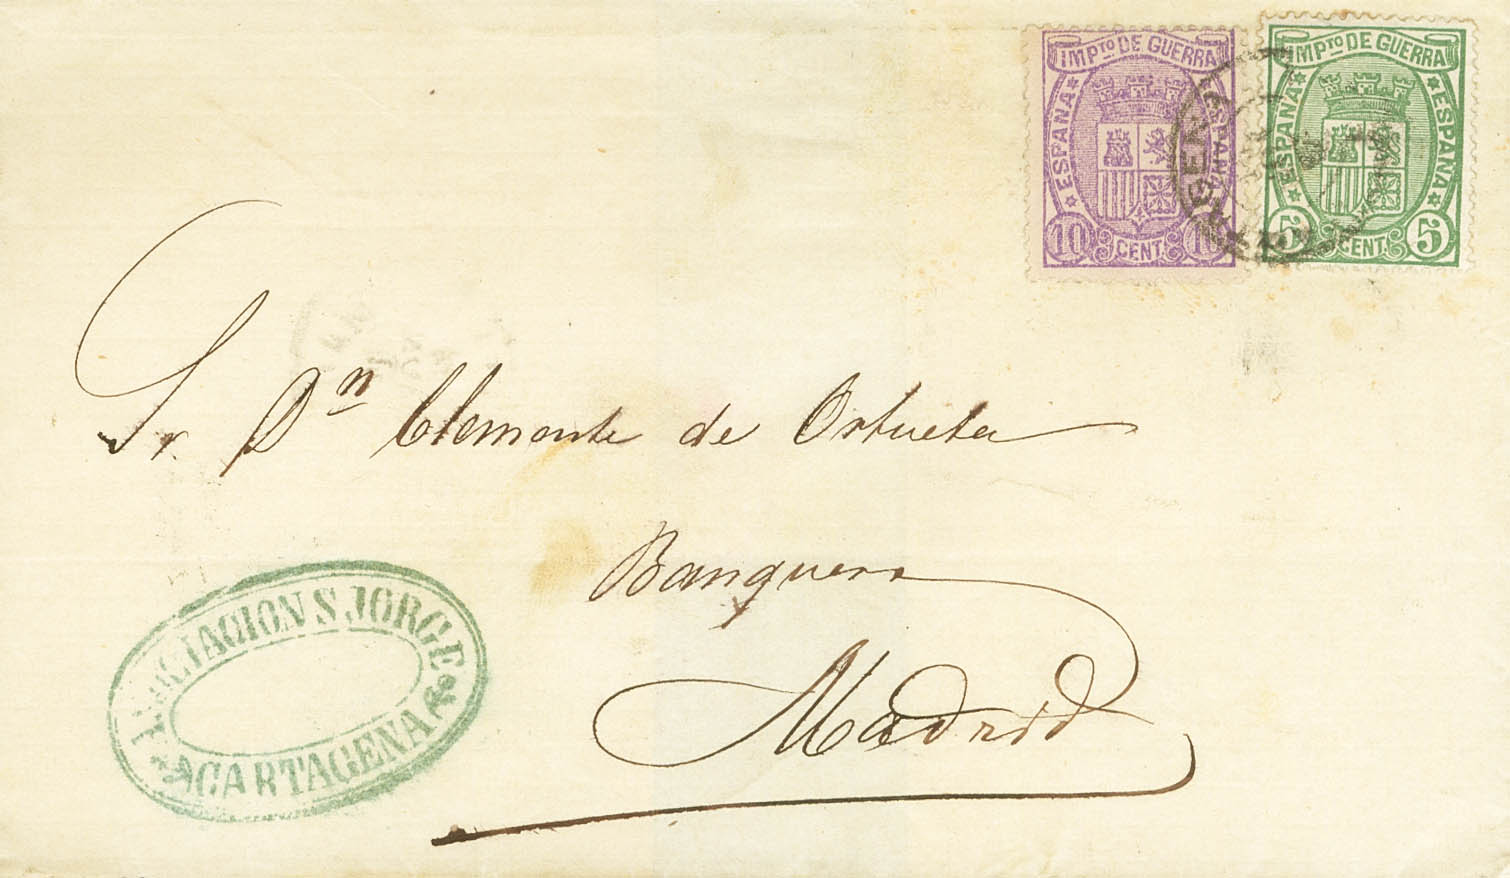 IMPto DE GUERRA
ESPAÑA ESPAÑA
10 CENT. 10
IMPto DE GUERRA
ESPAÑA ESPAÑA
5 CENT. 5
Sr. Dn Clemente de Ortueta
Banquero
Madrid
S. JORGE
CARTAGENA